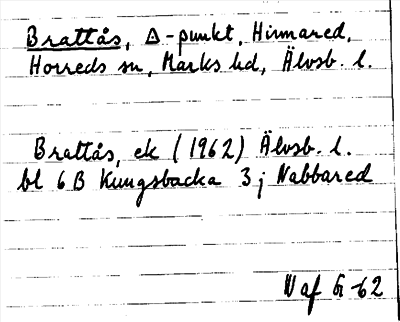 Brattås, Δ-punkt, Hinnared,
Horreds sn, Marks hd, Älvsb. l.
Brattås, ek (1962) Älvsb. l.
bl 6B Kungsbacka 3j Nabbared
N af -62